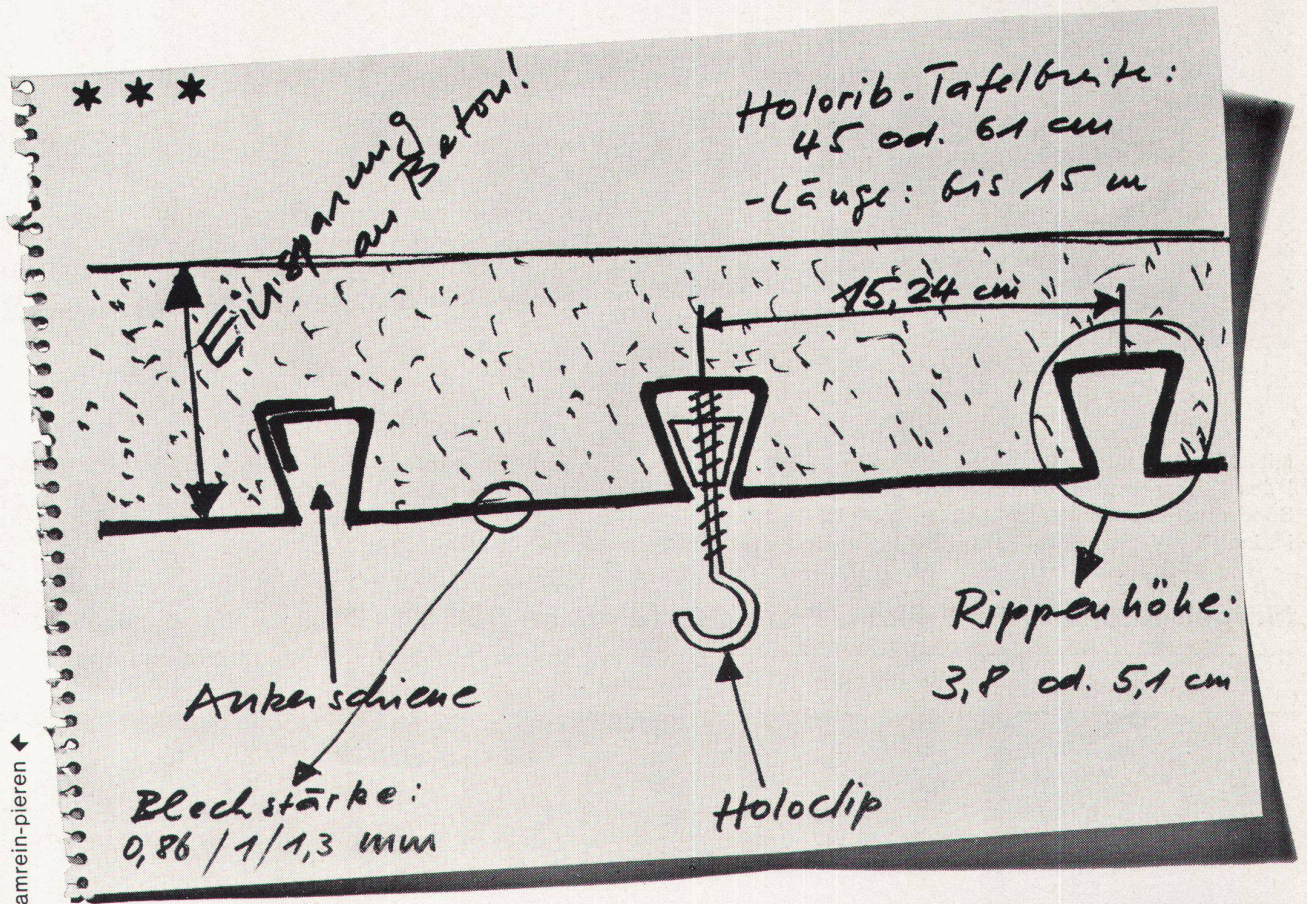 * * *
Einsparung
an Beton!
Holorib-Tafelbreite:
45 od. 61 cm
-Länge: bis 15 m
15,24 cm
Rippenhöhe:
3,8 od. 5,1 cm
Ankerschiene
Blechstärke:
0,86 / 1 / 1,3 mm
Holoclip
amrein-pieren